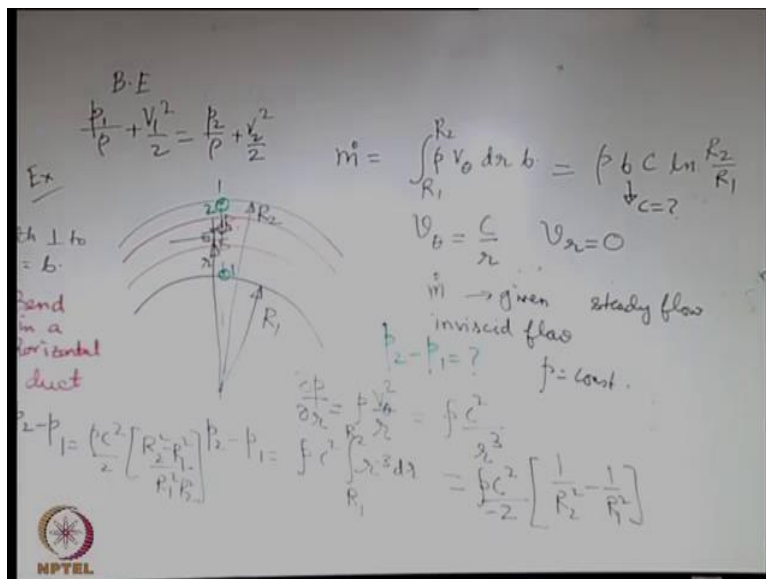 B.E
p₁/ρ + V₁²/2 = p₂/ρ + V₂²/2
Ex
th ⊥ to
= b.
Bend
in a
horizontal
duct
1
2
R₂
r
1
R₁
ṁ = ∫_{R₁}^{R₂} ρ v_θ dr b = ρ b C ln R₂/R₁
C = ?
v_θ = C/r v_r = 0
ṁ → given steady flow
inviscid flow
p₂ - p₁ = ? ρ = const.
∂p/∂r = ρ v_θ²/r = ρ C²/r³
p₂ - p₁ = ρ C² ∫_{R₁}^{R₂} r³ dr = ρC²/-2 [1/R₂² - 1/R₁²]
p₂ - p₁ = ρC²/2 [R₂² - R₁² / R₁² R₂²]
NPTEL